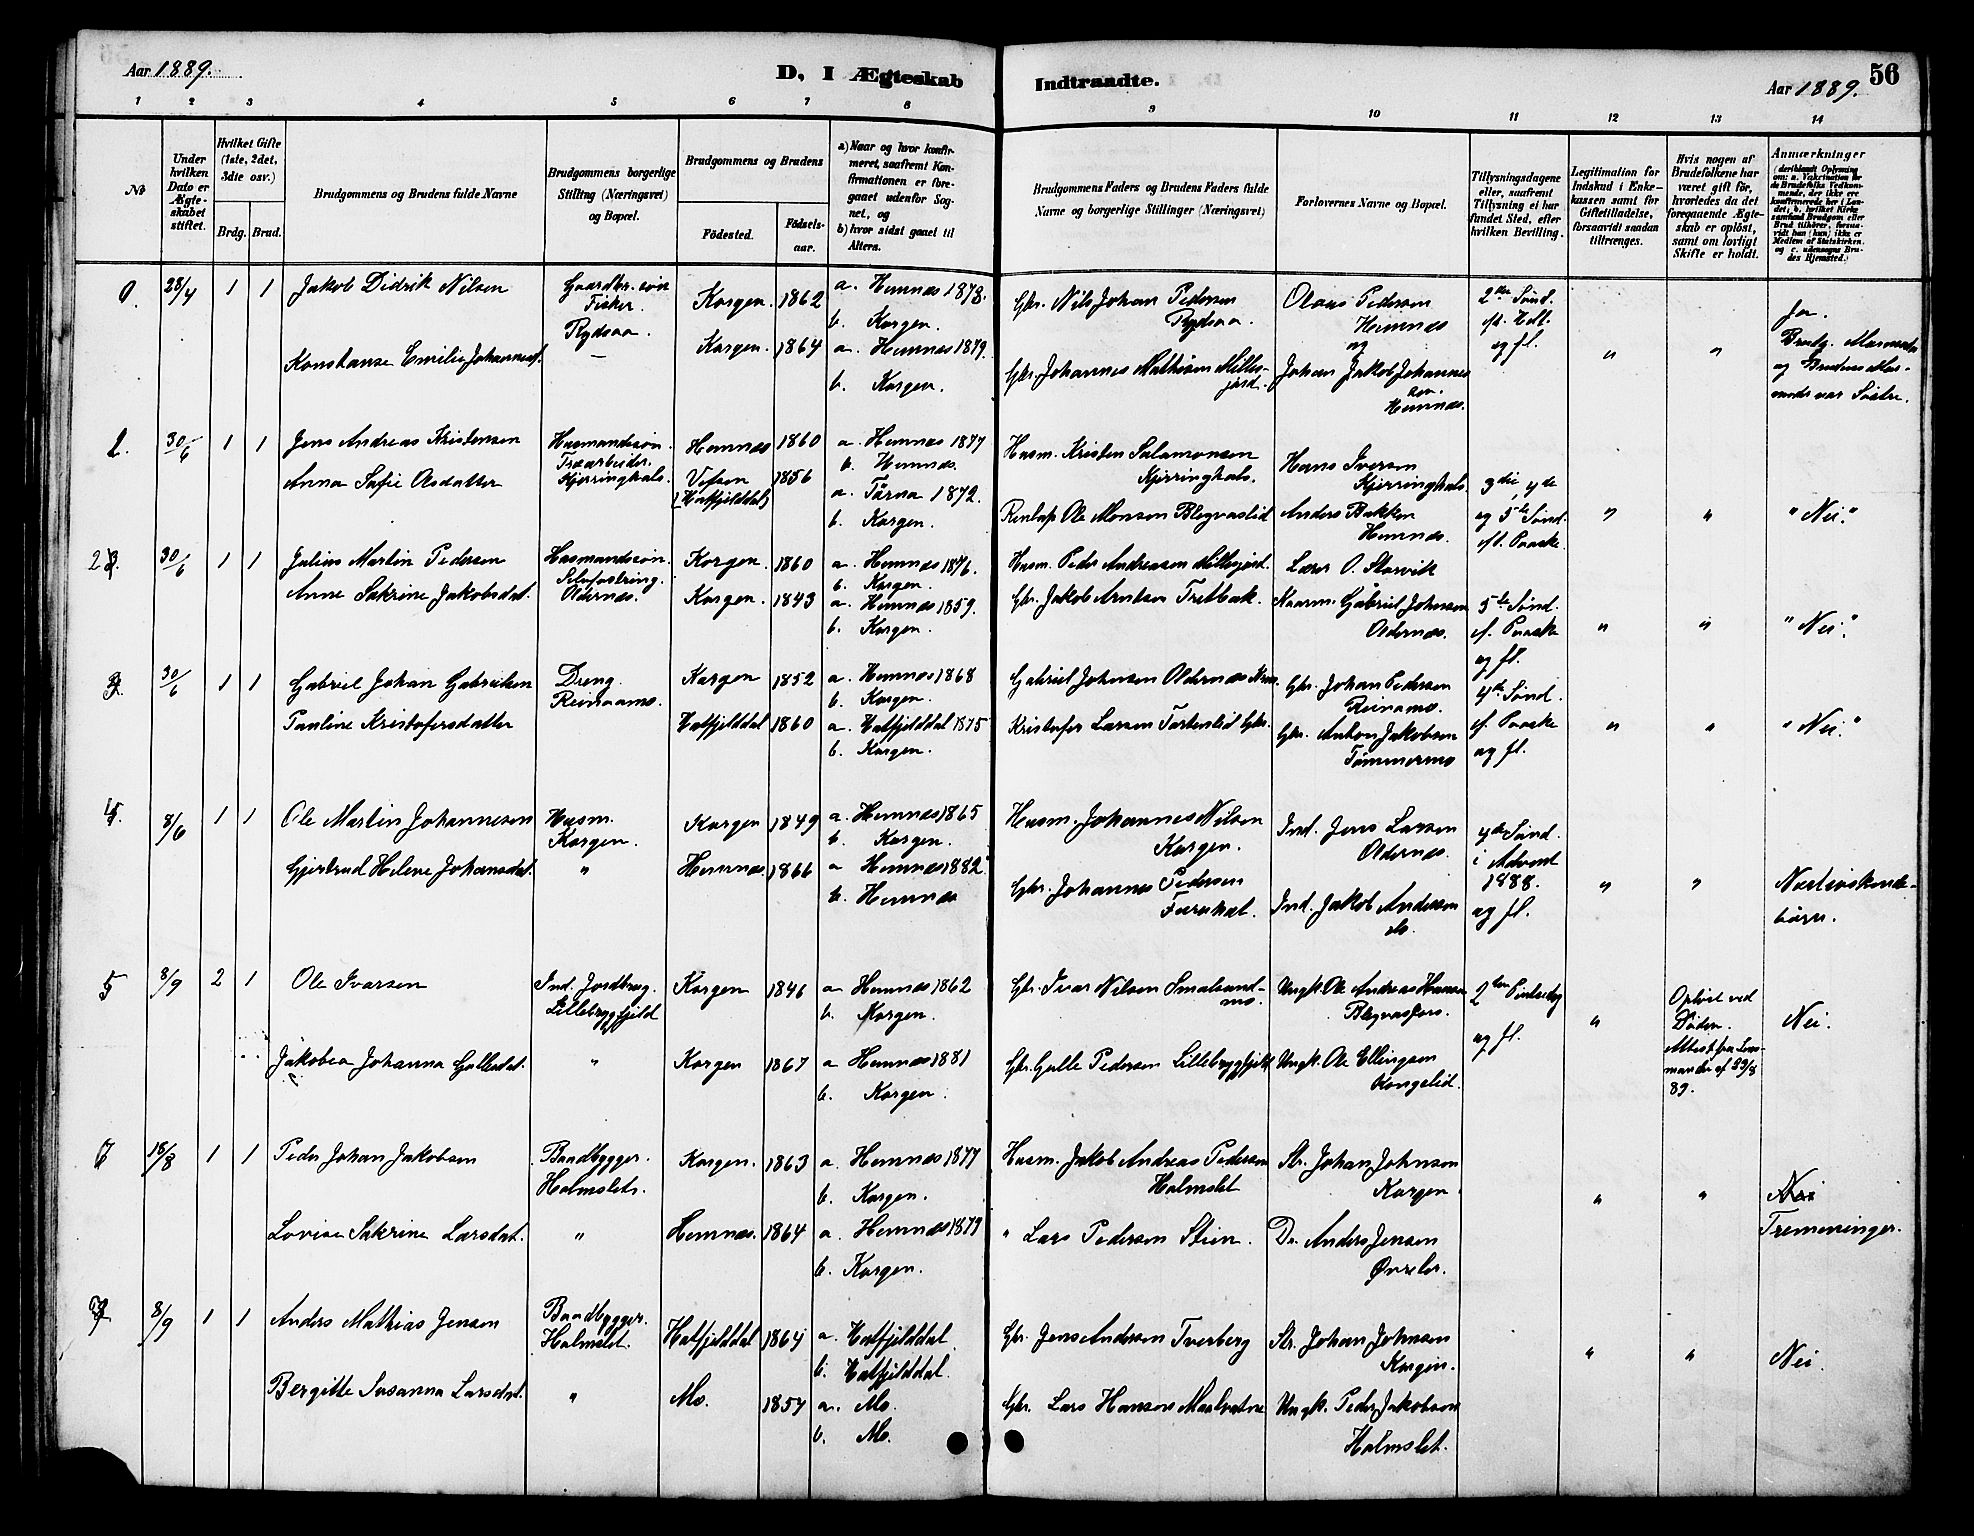 Aar 1889. D, I Ægteskab Indtraadte. Aar 1889. 56
1 2 3 4 5 6 7 8 9 10 11 12 13 14
No
Under hvilken Dato er Ægteskabet stiftet.
Hvilket Gifte (1ste, 2det, 3die osv.)
Brdg. Brud.
Brudgommens og Brudens fulde Navne
Brudgommens borgerlige Stilling (Næringsvei) og Bopæl.
Brudgommens og Brudens
Fødested. Fødselsaar.
a) Naar og hvor konfirmeret, saafremt Konfirmationen er foregaaet udenfor Sognet, og
b) hvor sidst gaaet til Alters.
Brudgommens Faders og Brudens Faders fulde Navne og borgerlige Stillinger (Næringsvei)
Forlovernes Navne og Bopæl.
Tillysningsdagene eller, saafremt Tillysning ei har fundet Sted, efter hvilken Bevilling.
Legitimation for Indskud i Enkekassen samt for Giftetilladelse, forsaavidt saadan tiltrænges.
Hvis nogen af Brudefolkene har været gift før, hvorledes da det foregaaende Ægteskab er opløst, samt om lovligt Skifte er holdt.
Anmærkninger
28/4 1 1 Jakob Didrik Nilsen Gaardbr. søn Korgen 1862 a. Hemnes 1878. Gbr. Nils Johan Pedersen Olaus Pedersen 2den Sønd.
Fisker. b. Korgen. Rydsaa. Hemnes
Rydsaa og og fl. Ja.
Konstanse Emilie Johannesd. Korgen. 1864 a. Hemnes 1879. Gbr. Johannes Mathisen Millesjord. Johan Jakob Johannessen. " " Brudg. Mormoder
b. Korgen. Hemnes. og Brudens Mormoder var Søstre.
1. 30/6 1 1 Jens Andreas Kristensen Husmandssøn. Hemnes 1860 a. Hemnes 1877 Husm. Kristen Salamonsen Hans Iversen
Træarbeider. b. Hemnes. Kjerringhals. Kjerringhals. 3die, 4de
Anna Safie Olsdatter Kjerringhals. Vefsen 1856 a. Tärna 1872. Ole Monsen Anders Bakken og 5te Sønd. " " "Nei."
(Hatfjelddal) b. Korgen. Hemnes. ef. Paaske
2 30/6 1 1 Julius Martin Pedersen Husmandssøn Korgen. 1860 a. Hemnes 1876. Husm. Peder Andreasen Millesjord. Lærer O. Storvik
Oldernes. b. Korgen.
Anne Sakrine Jakobsdat. Korgen. 1843 a. Hemnes 1859. Gbr. Jakob Arntsen Tretbak. Gabriel Johnsen 5te Sønd.
b. Korgen. Oldernes. ef. Paaske " " "Nei."
og fl.
3 30/6 1 1 Gabriel Johan Gabrielsen Dreng. Korgen 1852 a. Hemnes 1868 Gabriel Johnsen Oldernes Gbr. Johan Pedersen 4de Sønd.
b. Korgen. Reinamo.
Pauline Kristofersdatter Hatfjelddal 1860 a. Hatfjelddal 1875 Kristofer Larsen Gbr. Anton Jakobsen ef. Paaske " " "Nei."
b. Korgen. Tømmermo og fl.
4. 8/6 1 1 Ole Martin Johannesen Husm. Korgen 1849 a. Hemnes 1865 Husm. Johannes Nilsen Ind. Jens Larsen 4de Sønd.
Korgen. b. Korgen. Korgen. Oldernes. i Advent
Gjertrud Helene Johansdat. " Hemnes 1866 a Hemnes 1882 Gbr. Johannes Pedersen 1888. " " Næstsøskendebørn.
b. Hemnes Ind. Jakob Andersen og fl.
do.
5 8/9 2 1 Ole Ivarsen Ind. Jordbrug. Korgen 1846 a. Hemnes 1862 Gbr. Ivar Nilsen Smalsundmo. Ungk. Ole Andreas Hansen 2den Pintsedag Opløst ved
Lillebryggfjeld b. Korgen. og fl. " Døden. Nei.
Jakobea Johanna Gullesdat. " Korgen 1867 a Hemnes 1881 Gbr. Gulle Pedersen Lillebryggfjeld Ungk. Ole Ellingsen Attest fra Lensmanden af 89.
b. Korgen. Kongslid.
6 18/8 1 1 Peder Johan Jakobsen Baadbygger. Korgen. 1863 a. Hemnes 1877 Husm. Jakob Andreas Pedersen Str. Johan Johnsen
Holmslet. b. Korgen. Holmslet Korgen. " " Nei
Lovise Sakrine Larsdat. " Hemnes. 1864 a. Hemnes 1879 " Lars Pedersen Stien. Dr. Anders Jensen Tremeninger.
b. Korgen.
7 8/9 1 1 Anders Mathias Jensen Baadbygger. Hatfjelddal 1864 a. Hatfjelddal Gbr. Jens Andersen Tverberg Str. Johan Johnsen
Holmslet. b. Hatfjelddal. Korgen. " " Nei.
Bergitte Susanna Larsdat. " Mo. 1854 a. Mo. Gbr. Lars Hansen Ungk. Peder Jakobsen
b. Mo. Holmslet.